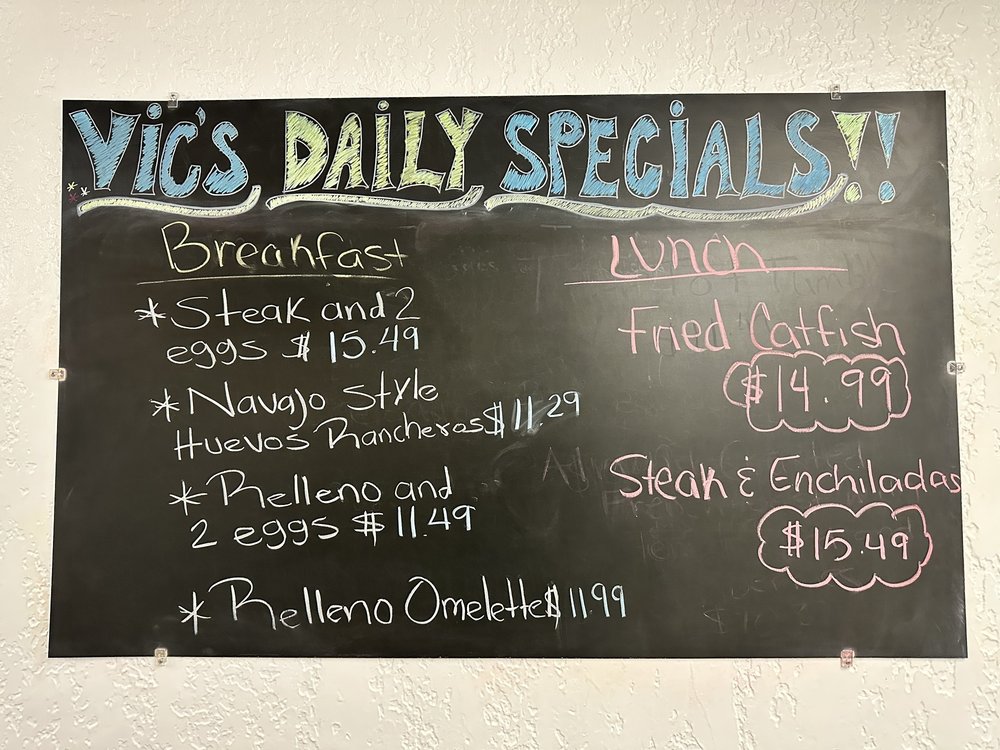 Vic's DAiLY SPECiALS!!
Breakfast
* Steak and 2
eggs $ 15.49
* Navajo Style
Huevos Rancheros $ 11.29
* Relleno and
2 eggs $ 11.49
* Relleno Omelette $ 11.99
Lunch
Fried Catfish
$14.99
Steak & Enchiladas
$15.49